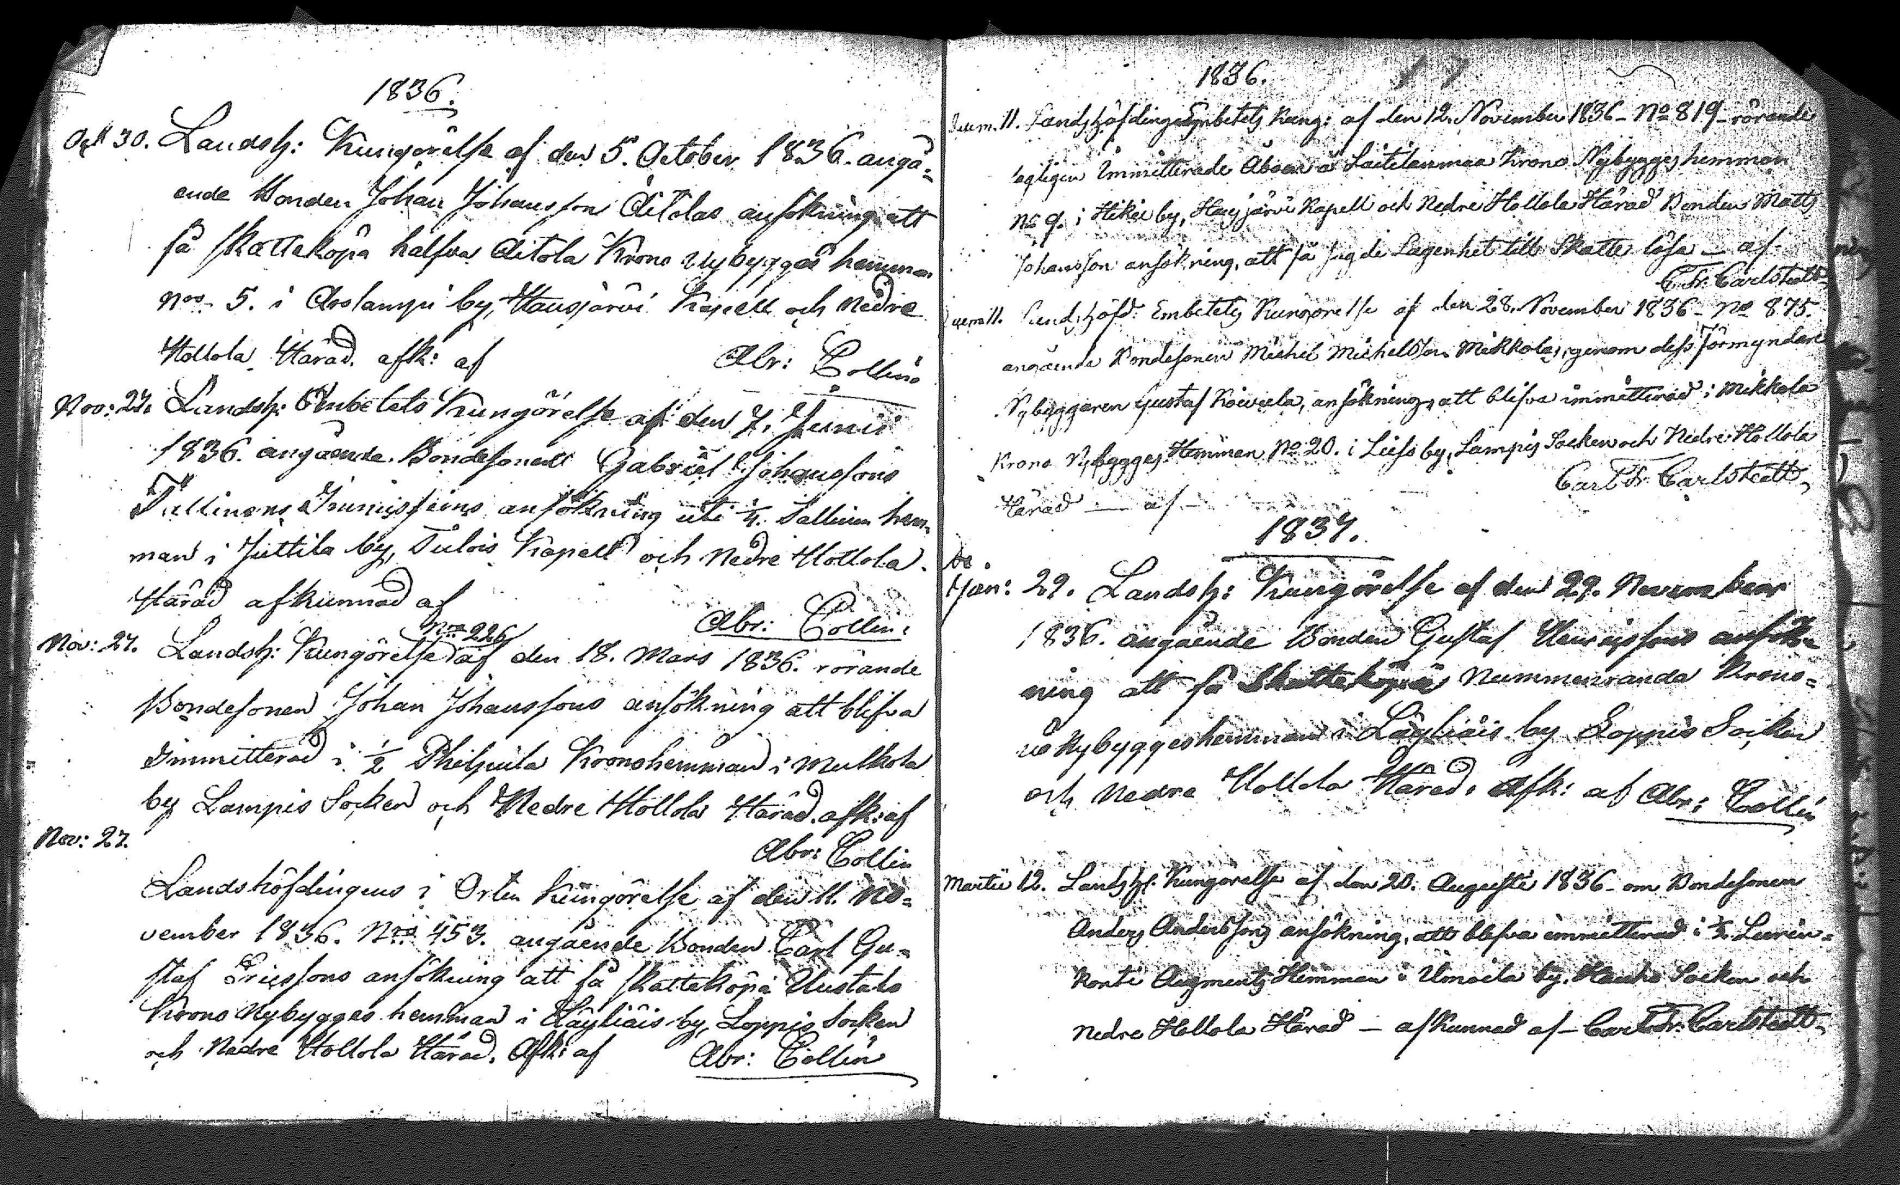 1836.
Oct 30. Landsh: Kungörelse af den 5. October 1836. angå=
ende Bonden Johan Johanssons Aitolas ansökning att
få skatteköpa halfva Aitola Krono Nybygges hemman
Nro 5. i Arolampi by, Hausjärvi Kapell och Nedre
Hollola Härad. afk: af Abr: Collin
Nov: 27. Landsh: Embetets Kungörelse af den 7. Junii
1836. angående Bondesonen Gabriel Johanssons
Tullinens Immissions ansökning uti 1/4. Tallinen hem-
man i Juttila by, Tulois Kapell och Nedre Hollola
Härad afkunnad af Abr: Collin:
Nro 226
Nov: 27. Landsh: Kungörelse af den 18. Mars 1836. rörande
Bondesonen Johan Johanssons ansökning att blifva
immitterad i 1/2 Philpula Kronohemman i Mulkola
by Lampis Socken och Nedre Hollola Härad. afk: af
Nov: 27. Abr: Collin
Landshöfdingens i Orten Kungörelse af den 11. No=
vember 1836. Nro 453. angående Bonden Carl Gu=
staf Ericssons ansökning att få skatteköpa Uustalo
Krono Nybygges hemman i Läyliäis by, Loppis Socken
och Nedre Hollola Härad. Afk: af Abr: Collin
1836. 17
Decem. 11. Landshöfdinge Embetets Kung: af den 12. November 1836 – No 819 – rörande
lagligen Immitterade Åboen å Laitilanmaa Krono Nybygges hemman
No 9. i Hikiä by, Hausjärvi Kapell och Nedre Hollola Härad Bonden Matts
Johansson ansökning, att få sagde Lägenhet till Skatte lösa – af
C. Fr. Carlstedt
Decem 11. Landshöfd: Embetets Kungörelse af den 28. November 1836 – No 875.
angående Bondesonen Michel Michelsson Mikkolas, genom dess Förmyndare
Nybyggaren Gustaf Koivula, ansökning, att blifva immitterad i Mikkola
Krono Nybygges Hemman No 20. i Lieso by, Lampis Socken och Nedre Hollola
Härad – af – Carl Fr. Carlstedt
1837.
Jan: 29. Landsh: Kungörelse af den 29. November
1836. angående Bonden Gustaf Henricssons ansök=
ning att få Skatteköpa Nummenranda Krono=
Nybyggeshemman i Läyliäis by Loppis Socken
och Nedre Hollola Härad. Afk: af Abr: Collin
Martii 12. Landshf. Kungörelse af den 20. Augusti 1836 – om Bondesonen
Anders Anderssons ansökning, att blifva immitterad i
Augments Hemman i by, Hauho Socken och
Nedre Hollola Härad – afkunnad af – Carl Fr. Carlstedt